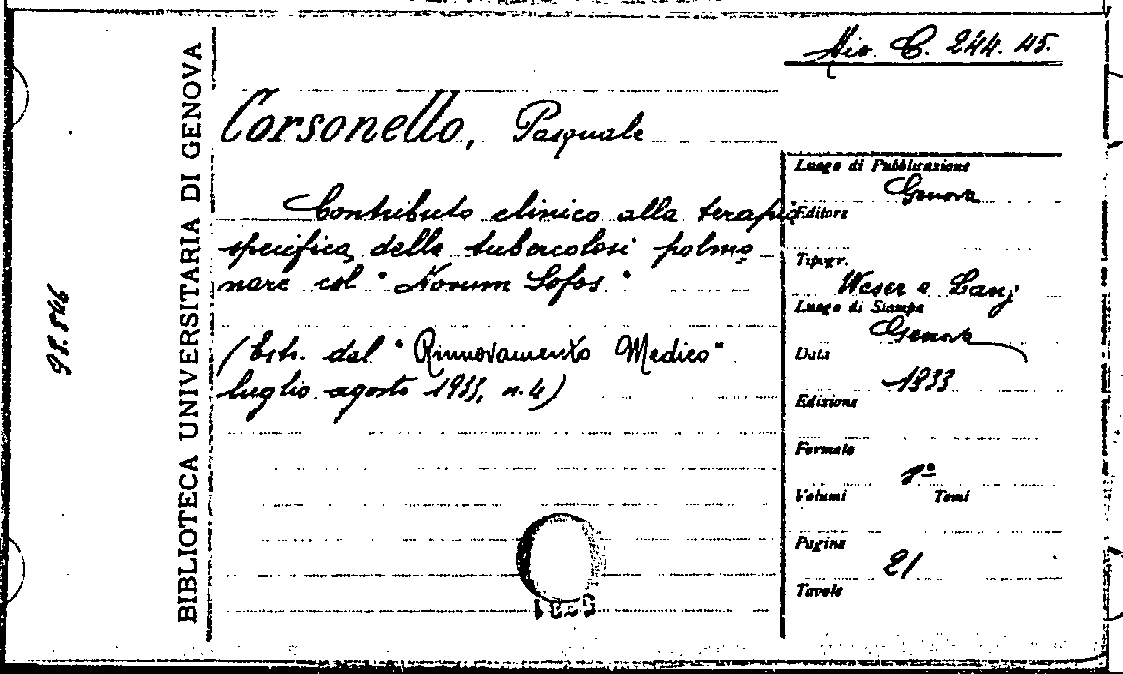 Mis. C. 244. 45.
BIBLIOTECA UNIVERSITARIA DI GENOVA
98.846
Corsonello, Pasquale
Contributo clinico alla terapia
specifica della tubercolosi polmo
nare col "Novum Sofos"
(Estr. dal "Rinnovamento Medico"
luglio agosto 1933, n. 4)
Luogo di Pubblicazione
Genova
Editore
Tipogr.
Weser e Lanj
Luogo di Stampa
Genova
Data
1933
Edizione
Formato
8º
Volumi Tomi
Pagine
21
Tavole